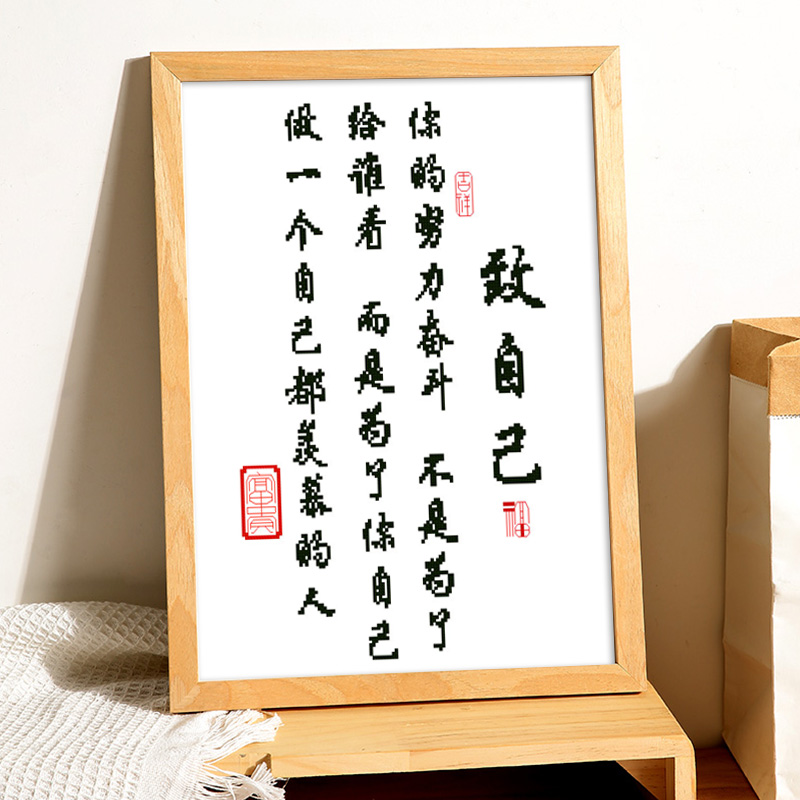 致自己
福
吉祥
你的努力奋斗 不是为了
给谁看 而是为了你自己
做一个自己都羡慕的人
富贵